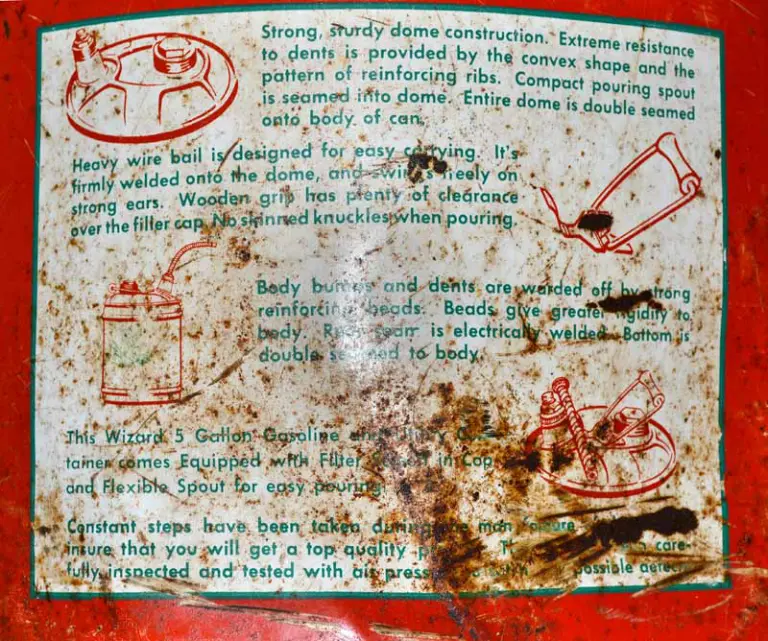 Strong, sturdy dome construction. Extreme resistance
to dents is provided by the convex shape and the
pattern of reinforcing ribs. Compact pouring spout
is seamed into dome. Entire dome is double seamed
onto body of can.
Heavy wire bail is designed for easy carrying. It's
firmly welded onto the dome, and swings freely on
strong ears. Wooden grip has plenty of clearance
over the filler cap. No skinned knuckles when pouring.
Body bumps and dents are warded off by strong
reinforcing beads. Beads give greater rigidity to
body. seam is electrically welded. Bottom is
double seamed to body.
This Wizard 5 Gallon Gasoline and
tainer comes Equipped with Filter in Cap
and Flexible Spout for easy pouring.
Constant steps have been taken during
insure that you will get a top quality care-
fully inspected and tested with air possible